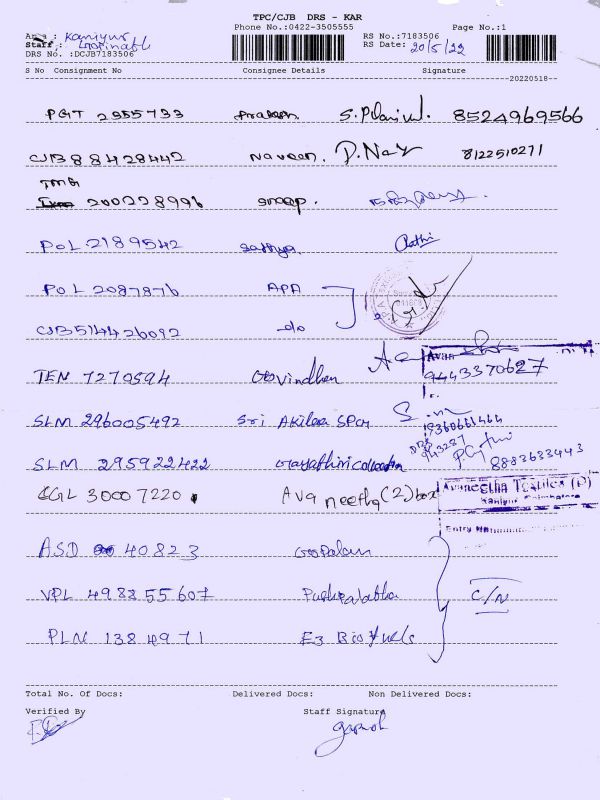 TPC/CJB DRS - KAR
Phone No.:0422-3505555 Page No.:1
Area : Kaniyur RS No.:7183506
Staff : Gopinath RS Date: 20/5/22
DRS No. :DCJB7183506
S No Consignment No Consignee Details Signature
20220518
PGT 2955733 Prakash 8524969566
CJB 88428442 Naveen. D.Nav 8122510271
TMG
200228996
POL 2189542 Sathya
POL 2087876 APA
CJB 514426092 do
Avan
TEN 7270594 Govindhan 9443370627
SLM 296005492 Sri Akilaa SPCM
SLM 295922422 Gayathiri collection 8883633443
CGL 30007220 Avaneetha (2) box Avaneetha Textiles (P)
Kaniyur Coimbatore
Entry
ASD 40823 Gopalan
VPL 498855607 Pushpalatha C/N
PLN 1384971 E3 Biofuels
Total No. Of Docs: Delivered Docs: Non Delivered Docs:
Verified By Staff Signature